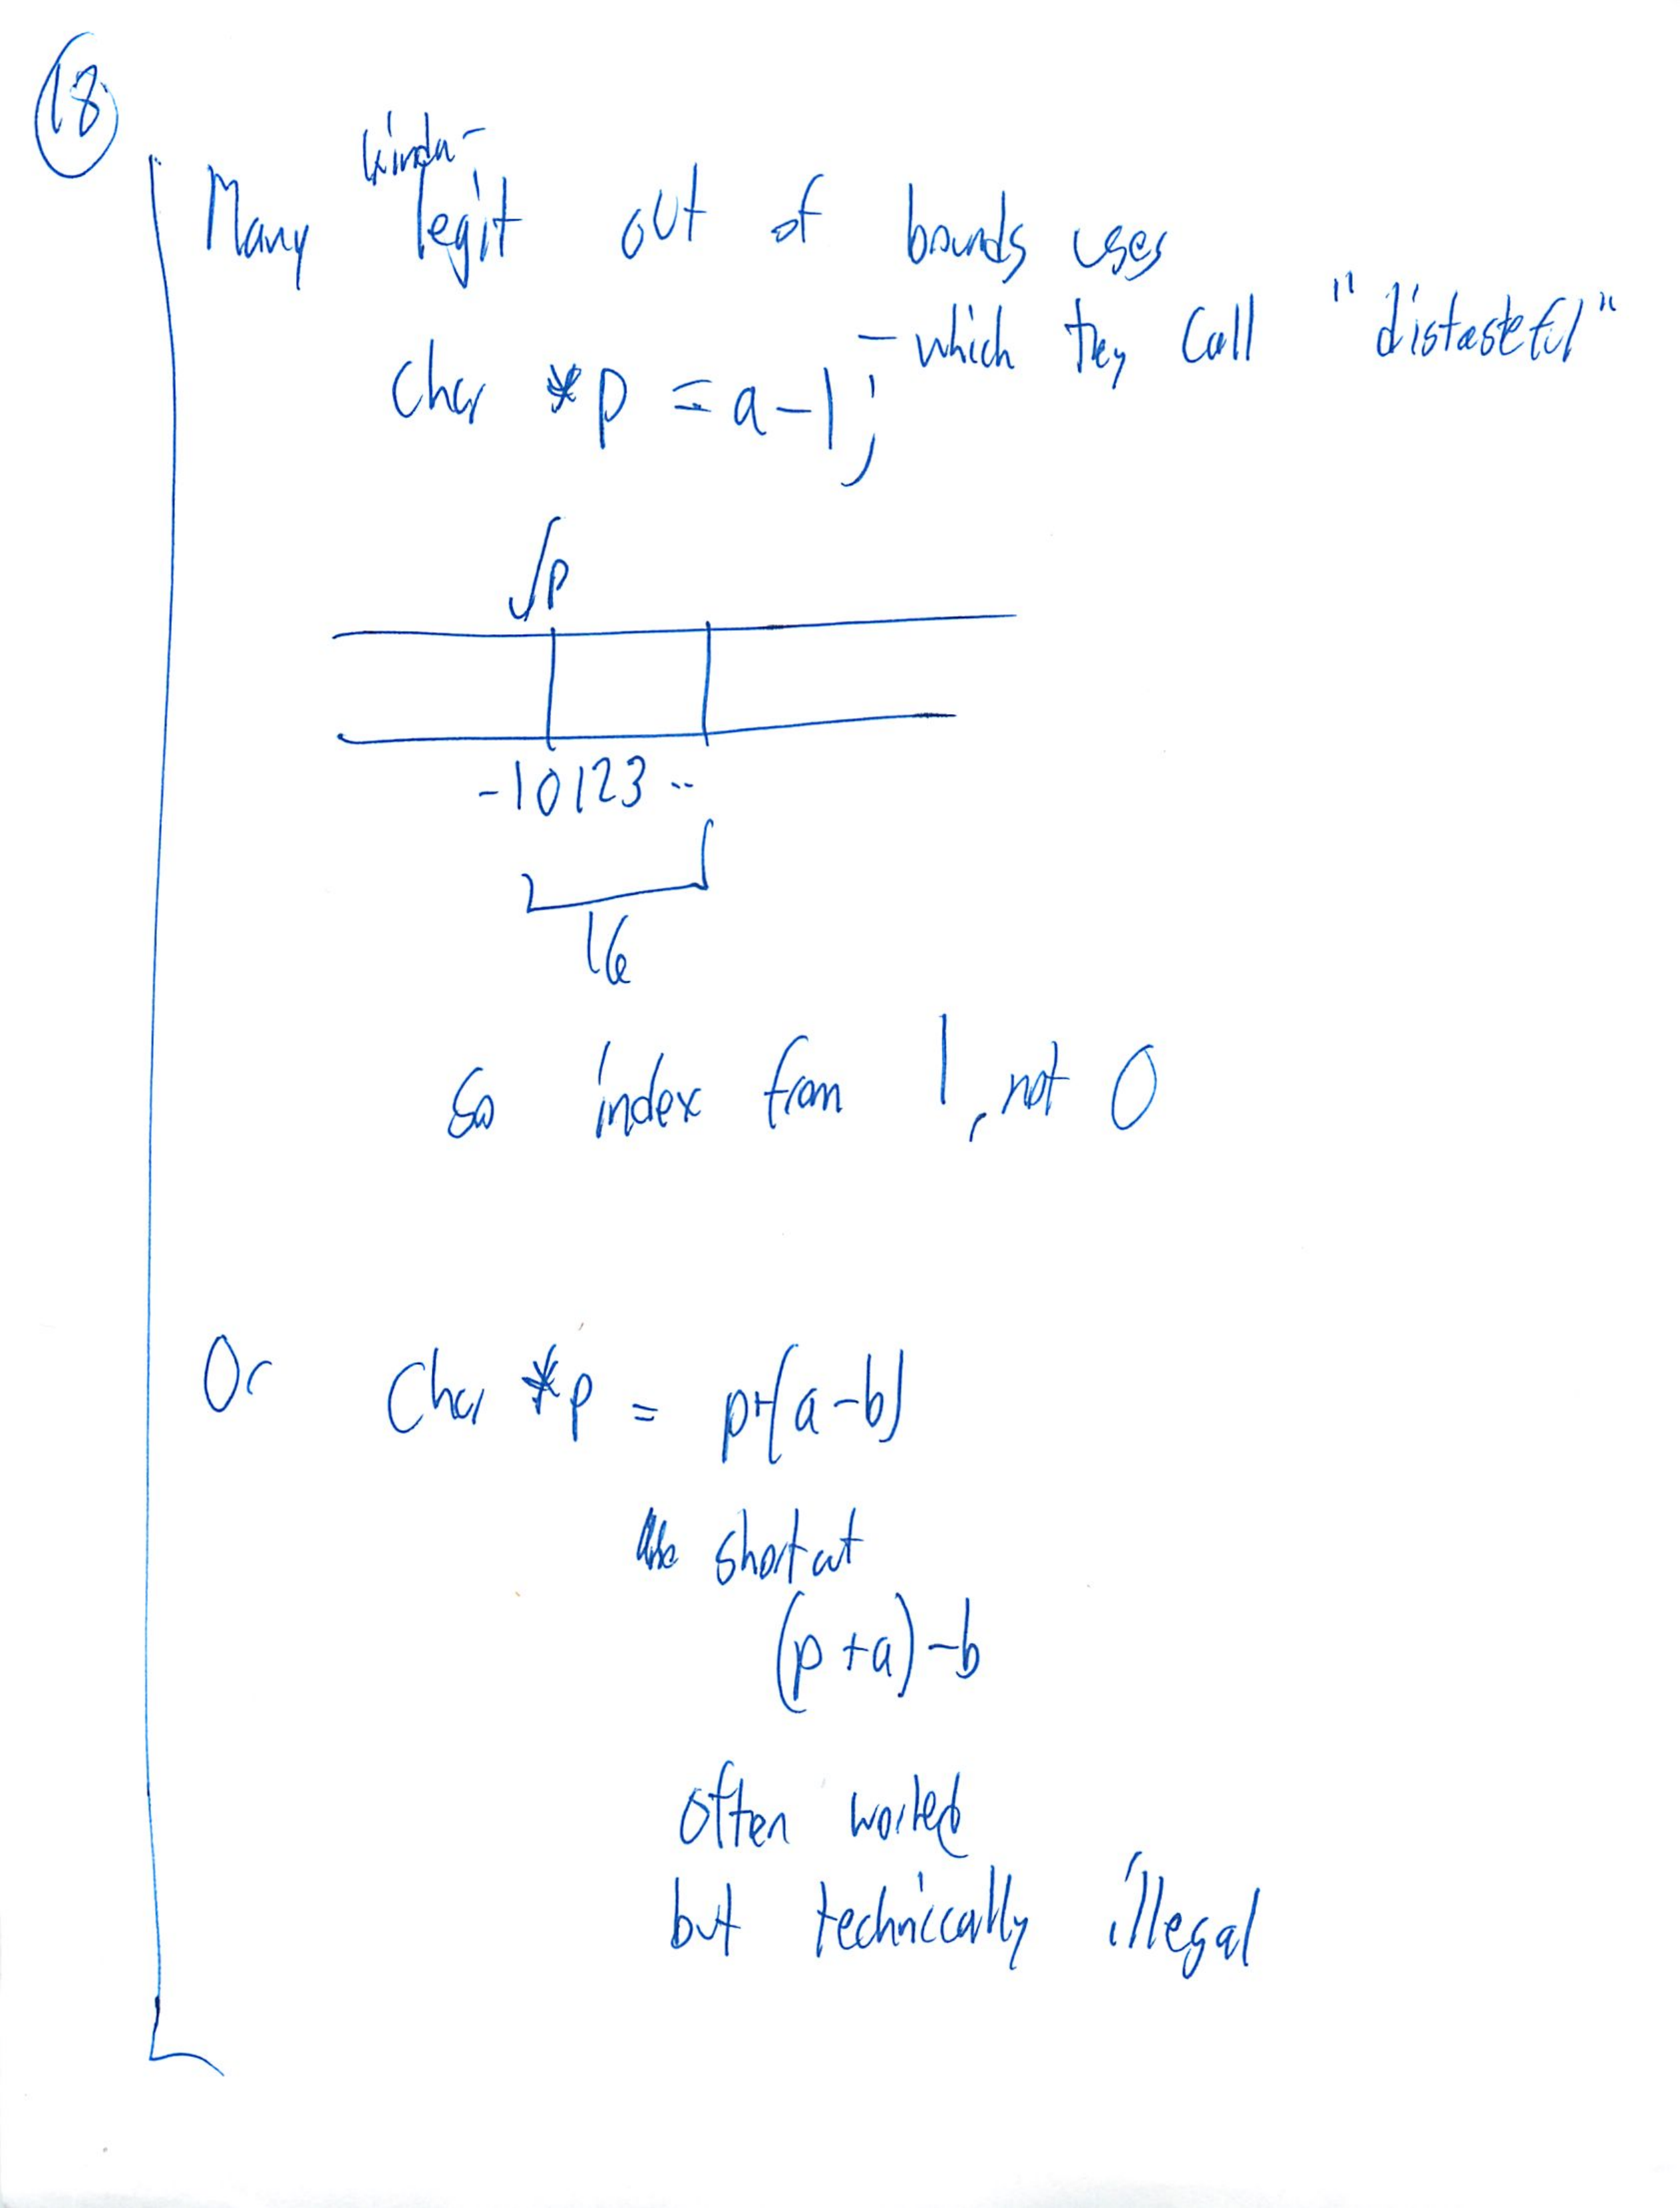 18
kinda-
Many legit out of bounds uses
- which they call "distasteful"
char *p = a-1;
p
-10123 ..
16
So index from 1, not 0
Or Char *p = p+(a-b)
shortcut
(p+a)-b
often worked
but technically illegal